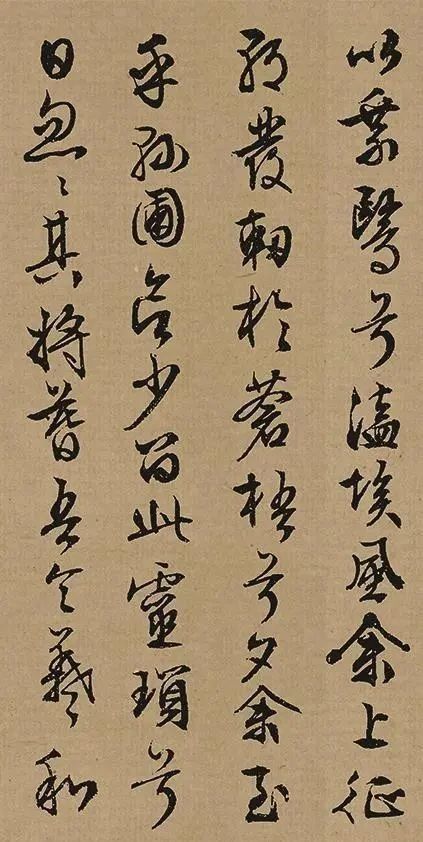 以椉鹥兮溘埃風余上征
朝發軔於蒼梧兮夕余至
乎縣圃欲少留此靈瑣兮
日忽〻其將暮吾令羲和